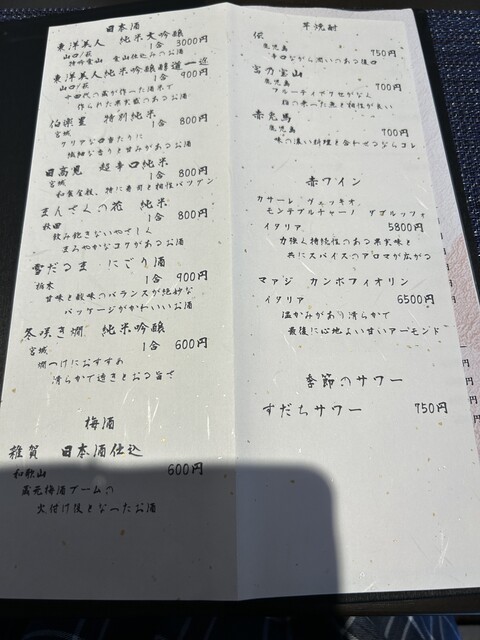 日本酒
東洋美人 純米大吟醸
1合 3000円
山口/萩
特吟愛山 愛山仕込みのお酒
東洋美人純米吟醸醇道一途
1合 900円
山口/萩
十四代の蔵が作った酒米で
作られた果実感のあるお酒
伯楽星 特別純米
1合 800円
宮城
クリアな口当たりに
繊細な香りと甘みがあるお酒
日高見 超辛口純米
1合 800円
宮城
和食全般、特に寿司と相性バツグン
まんさくの花 純米
1合 800円
秋田
飲み飽きないやさしく
まろやかなコクがあるお酒
雪だるま にごり酒
1合 900円
栃木
甘味と酸味のバランスが絶妙な
パッケージがかわいいお酒
冬咲き燗 純米吟醸
1合 600円
宮城
燗つけにおすすめ
清らかで透きとおる旨さ
梅酒
雑賀 日本酒仕込
600円
和歌山
蔵元梅酒ブームの
火付け役となったお酒
芋焼酎
伝
750円
鹿児島
辛口ながら潤いのある後口
富乃宝山
700円
鹿児島
フルーティでクセがなく
脂の乗った魚と相性が良い
赤兎馬
700円
鹿児島
味の濃い料理と合わせるならコレ
赤ワイン
カサーレ ヴェッキオ
モンテプルチャーノ ダブルッツォ
イタリア 5800円
力強く持続性のある果実味と
共にスパイスのアロマが広がる
マァジ カンポフィオリン
イタリア 6500円
温かみがあり清らかで
最後に心地よい甘いアーモンド
季節のサワー
すだちサワー 750円
円
円
円
円